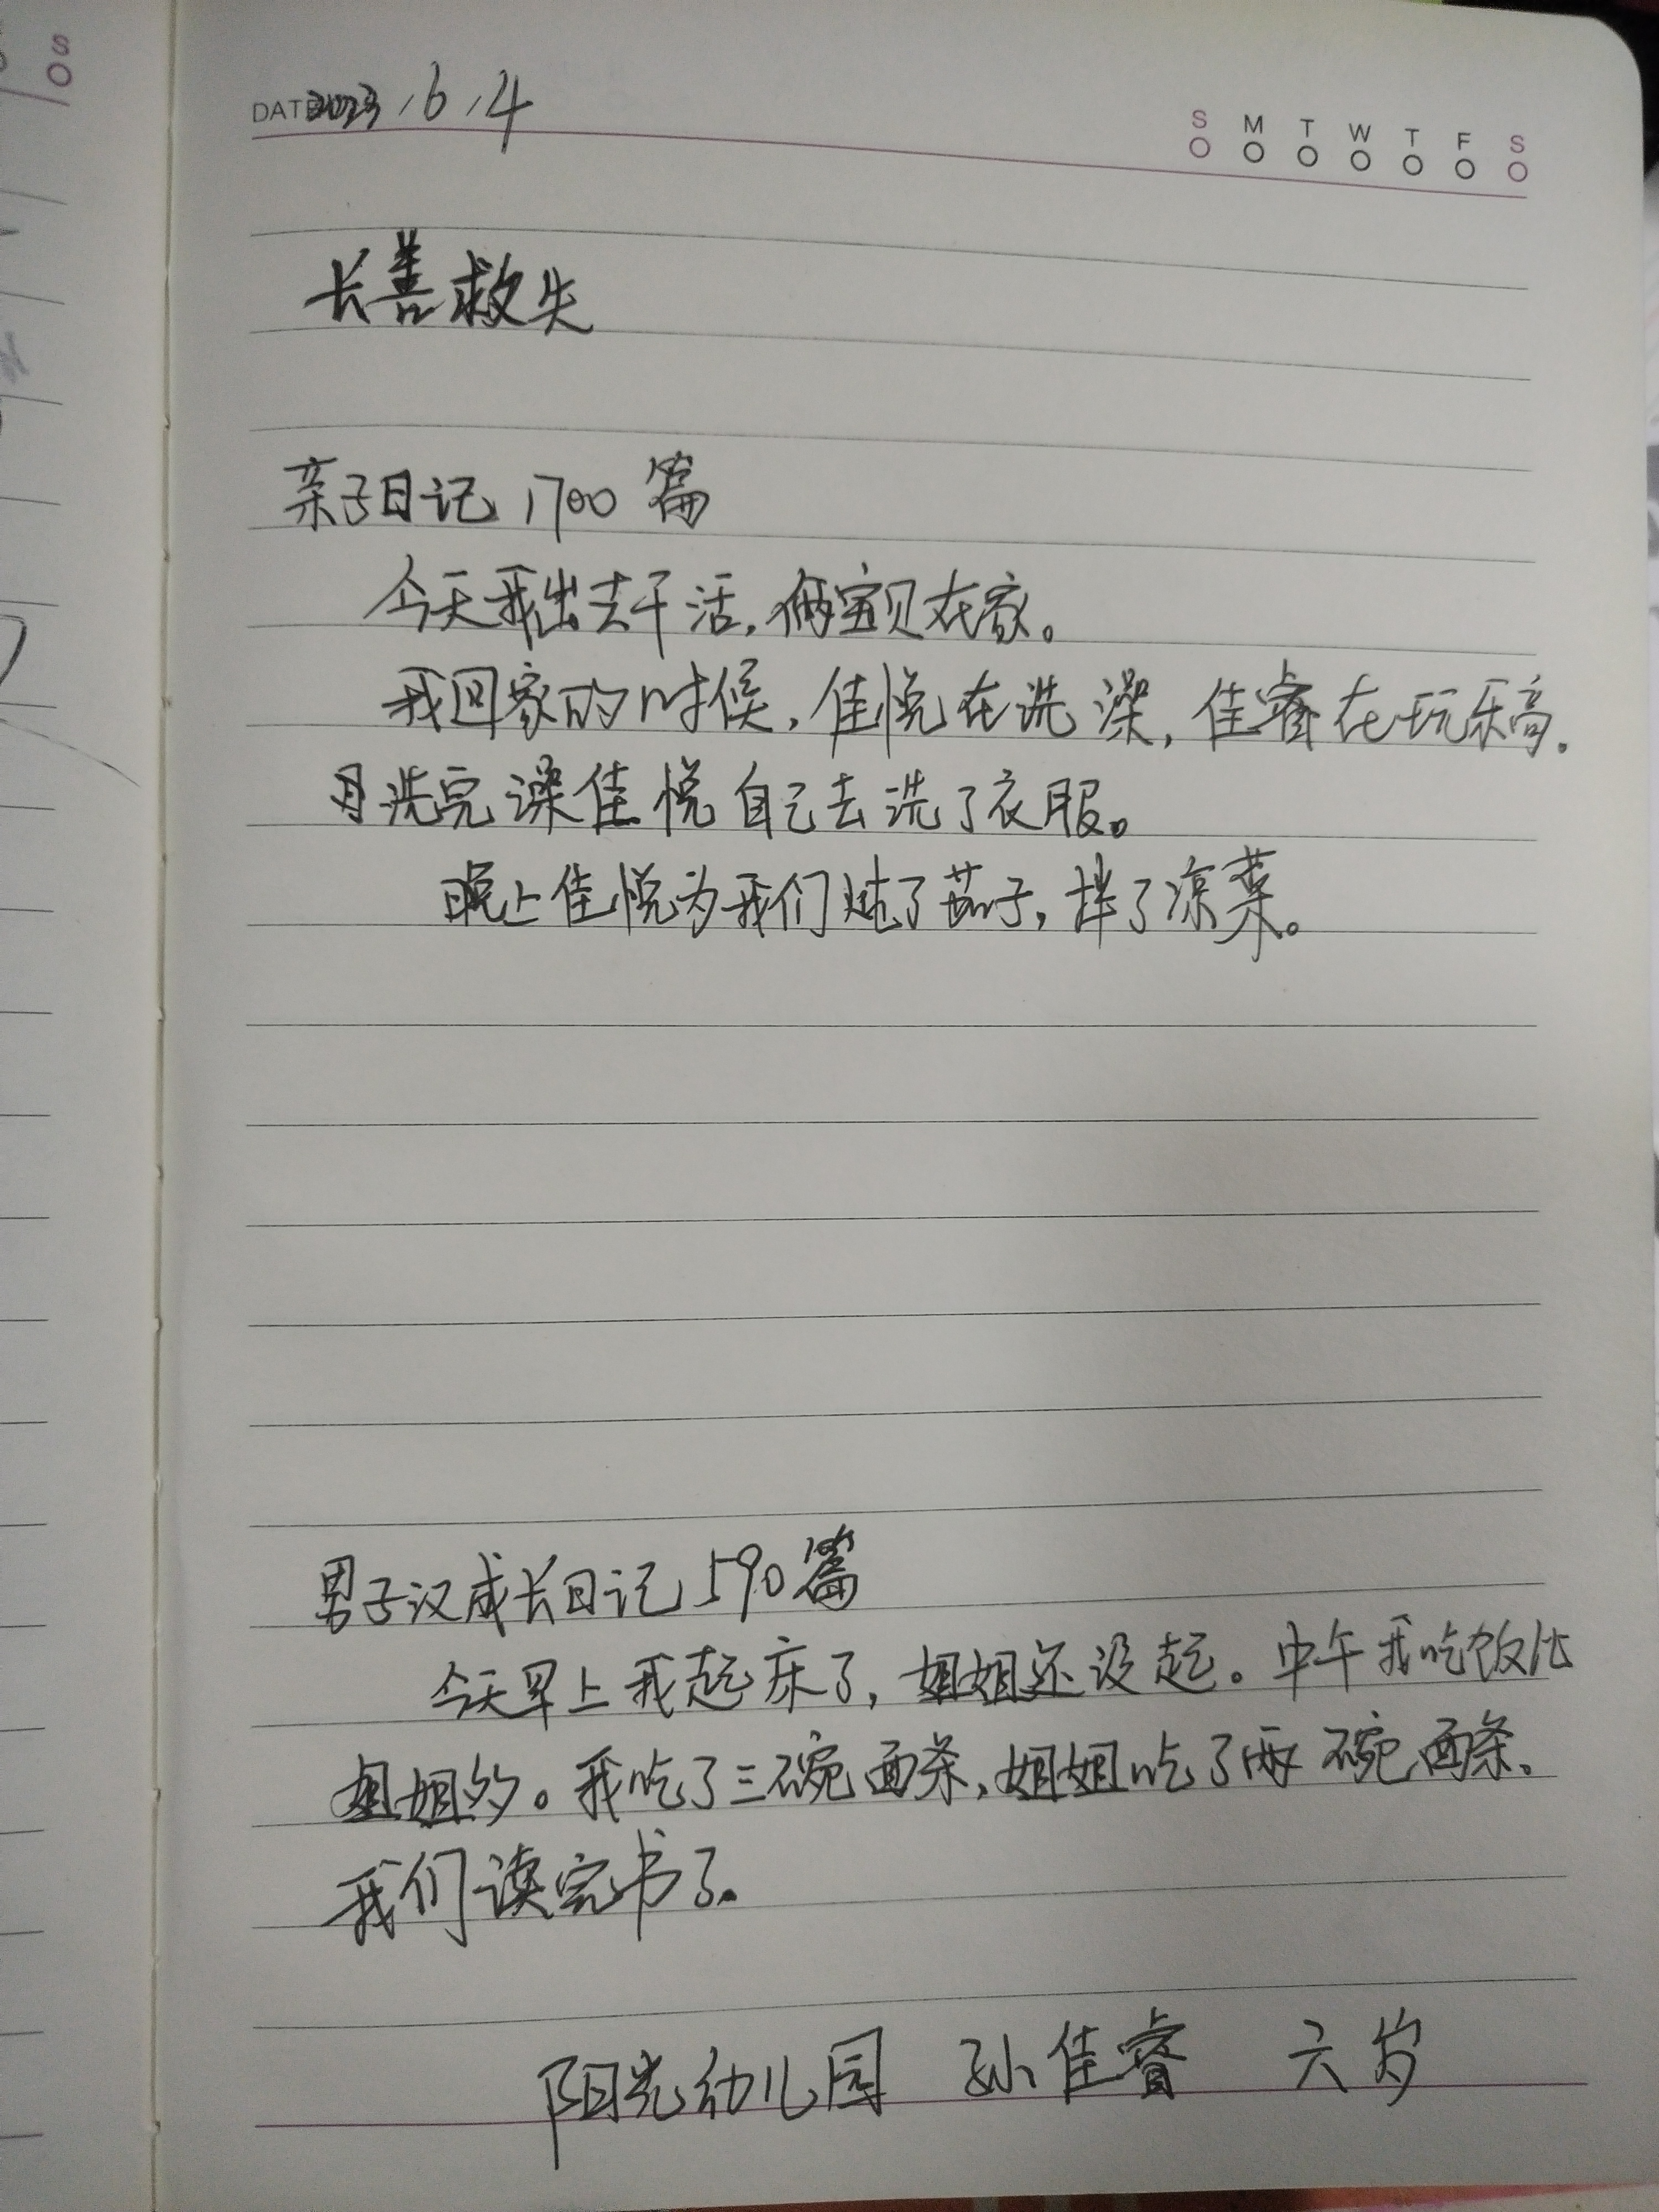 S
DATE 2023 / 6 / 4
S M T W T F S
长善救失
亲子日记 1700 篇
今天我出去干活,俩宝贝在家。
我回家的时候,佳悦在洗澡,佳睿在玩乐高.
洗完澡佳悦自己去洗了衣服。
晚上佳悦为我们炖了茄子,拌了凉菜。
男子汉成长日记 590 篇
今天早上我起床了,姐姐还没起。中午我吃饭比
姐姐的。我吃了三碗面条,姐姐吃了两碗面条.
我们读完书了.
阳光幼儿园 孙佳睿 六岁